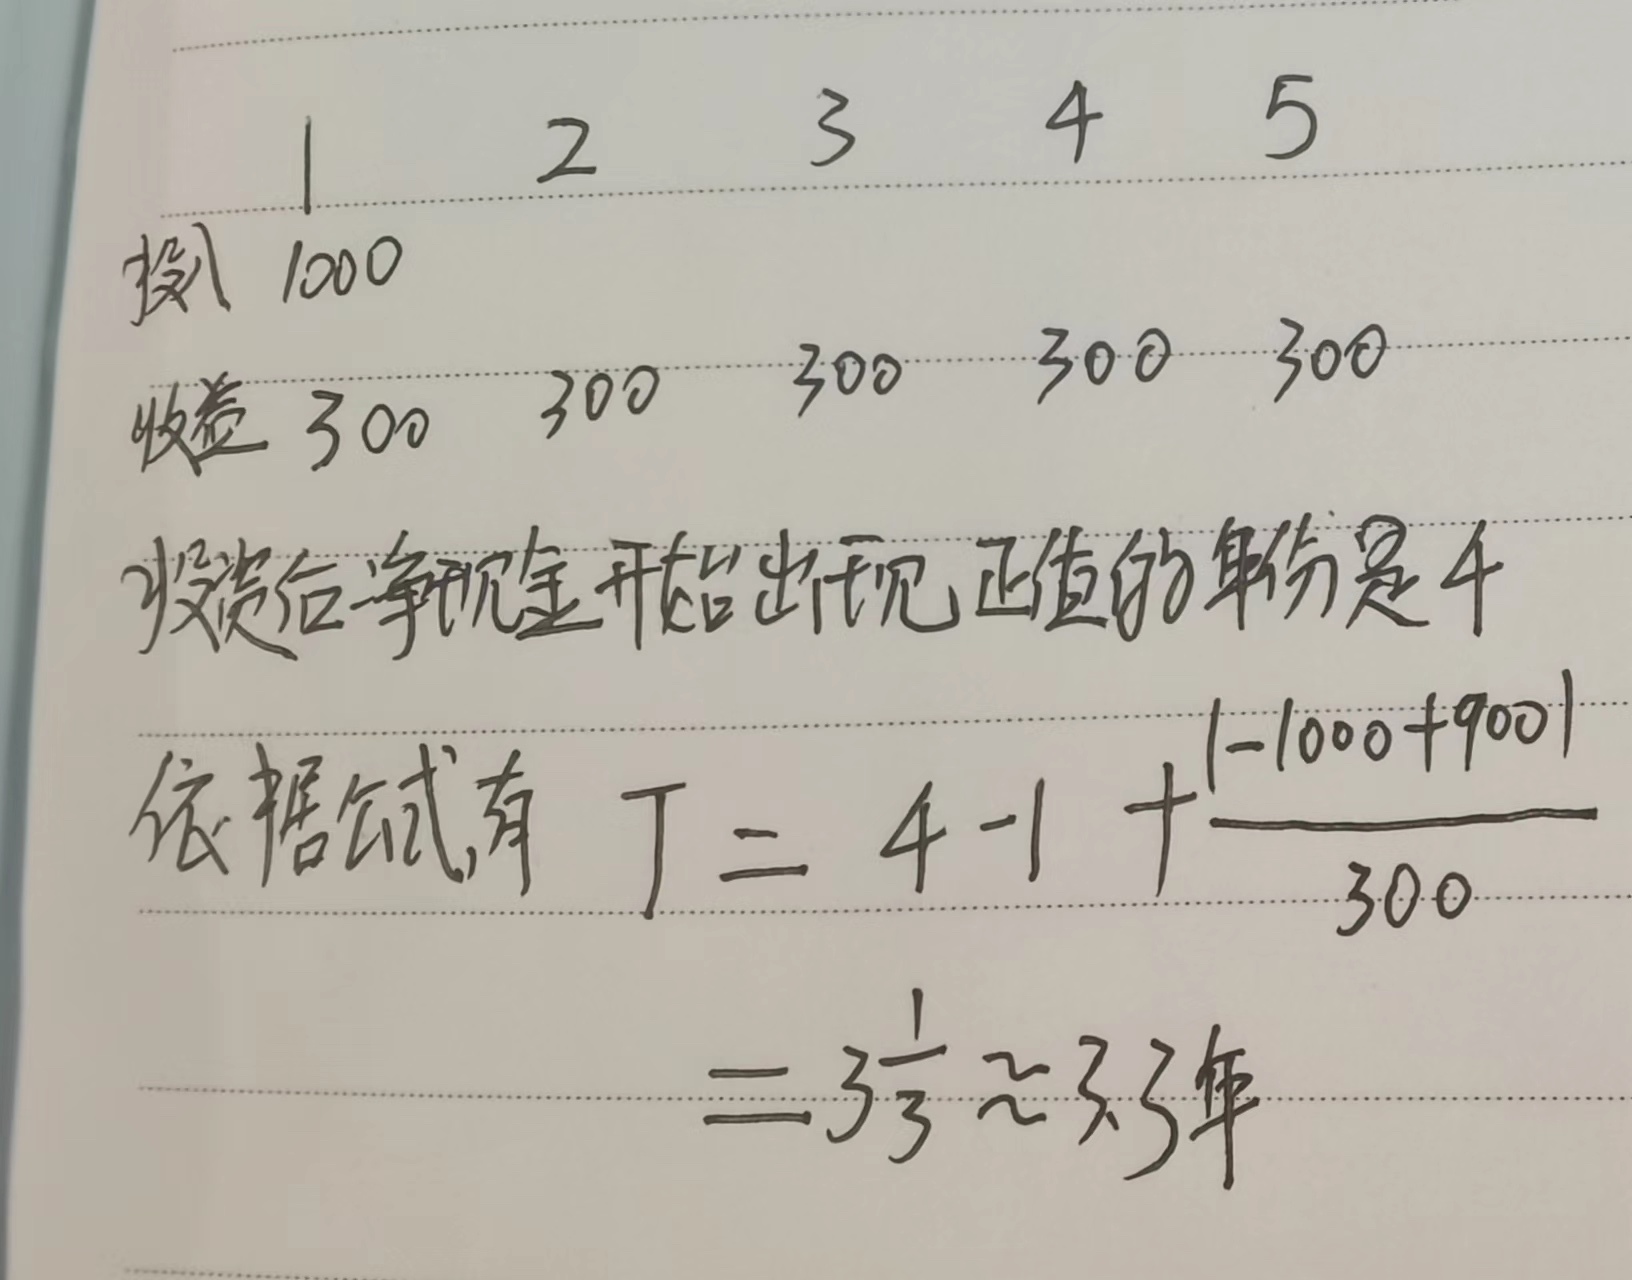 1 2 3 4 5
投入 1000
收益 300 300 300 300 300
投资后净现金开始出现正值的年份是4
依据公式,有 T = 4 - 1 + |-1000+900| / 300
= 3 1/3 ≈ 3.3年